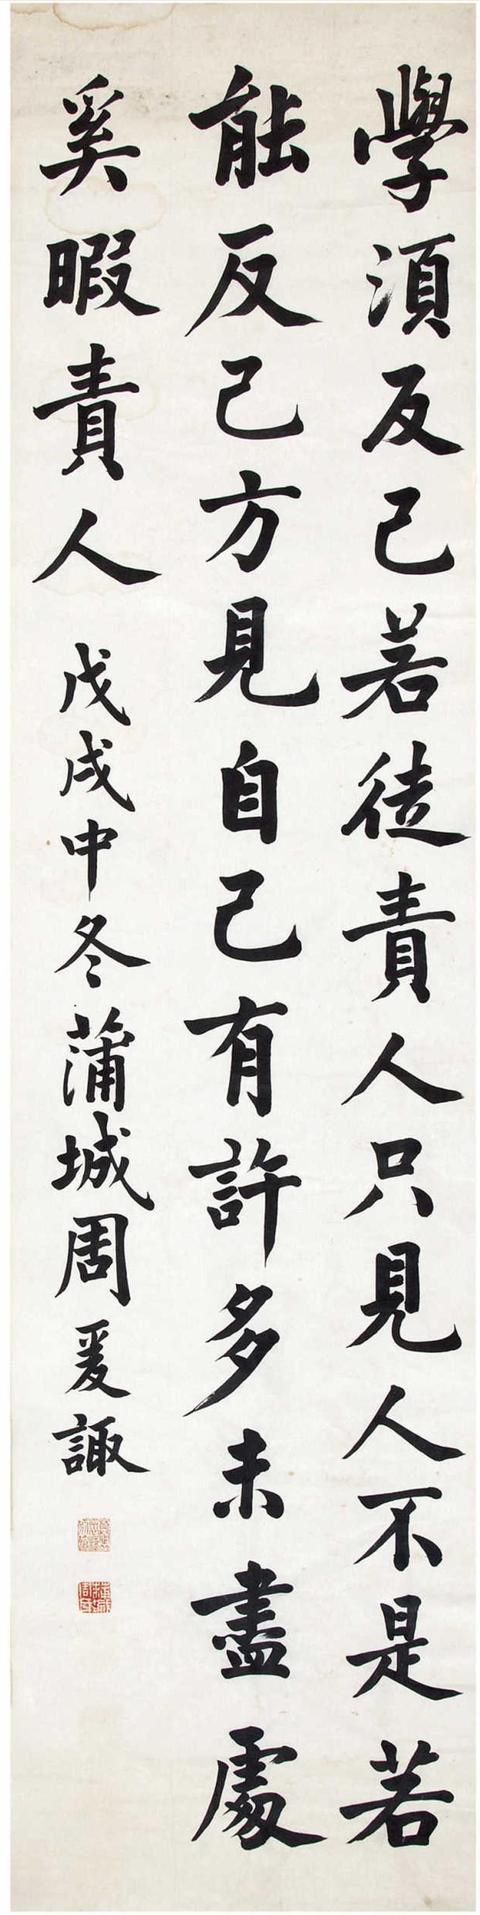 學須反己若徒責人只見人不是若
能反己方見自己有許多未盡處
奚暇責人 戊戌中冬蒲城周爰諏